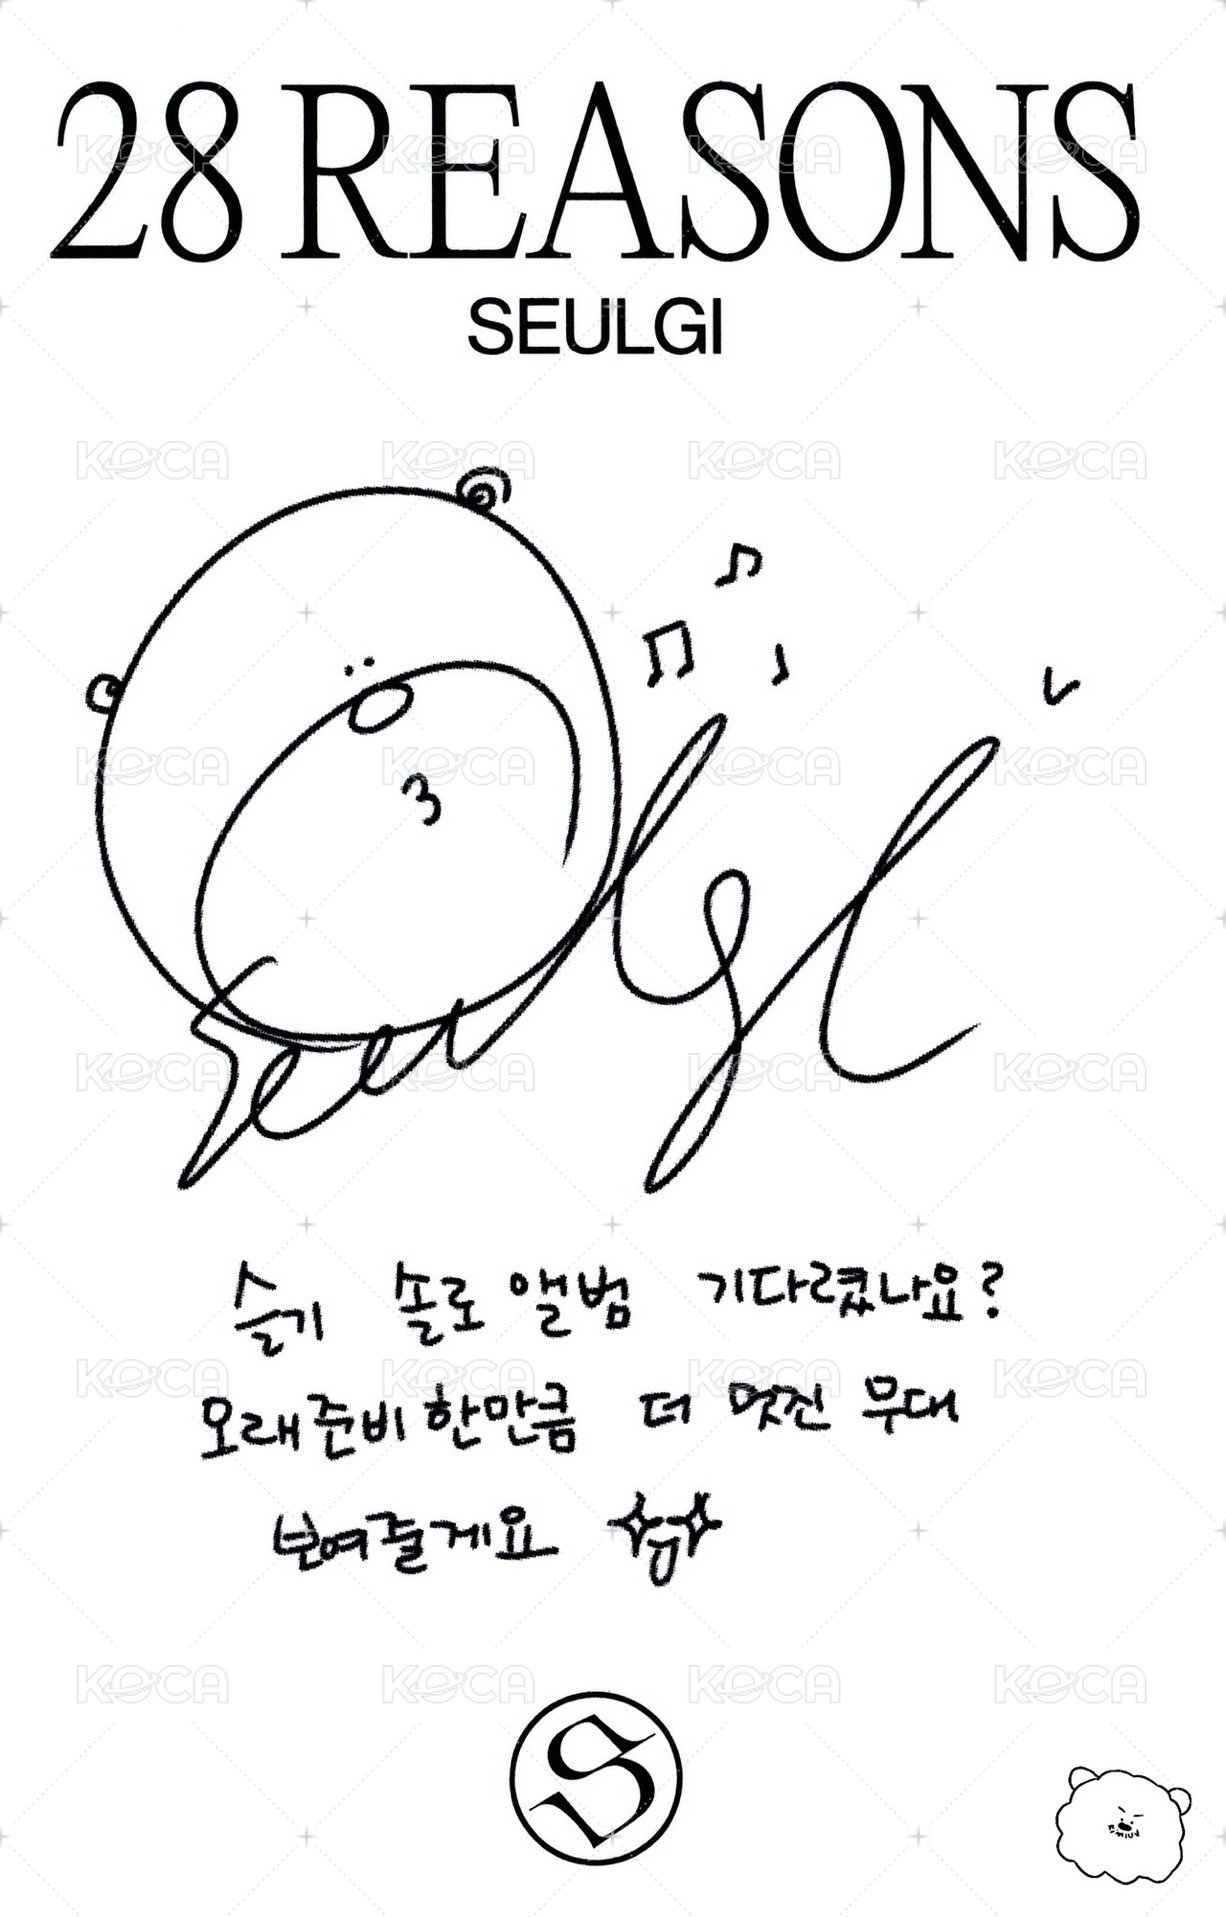 28 REASONS
SEULGI
Seulgi
슬기 솔로 앨범 기다렸나요?
오래 준비한만큼 더 멋진 무대
보여줄게요
S